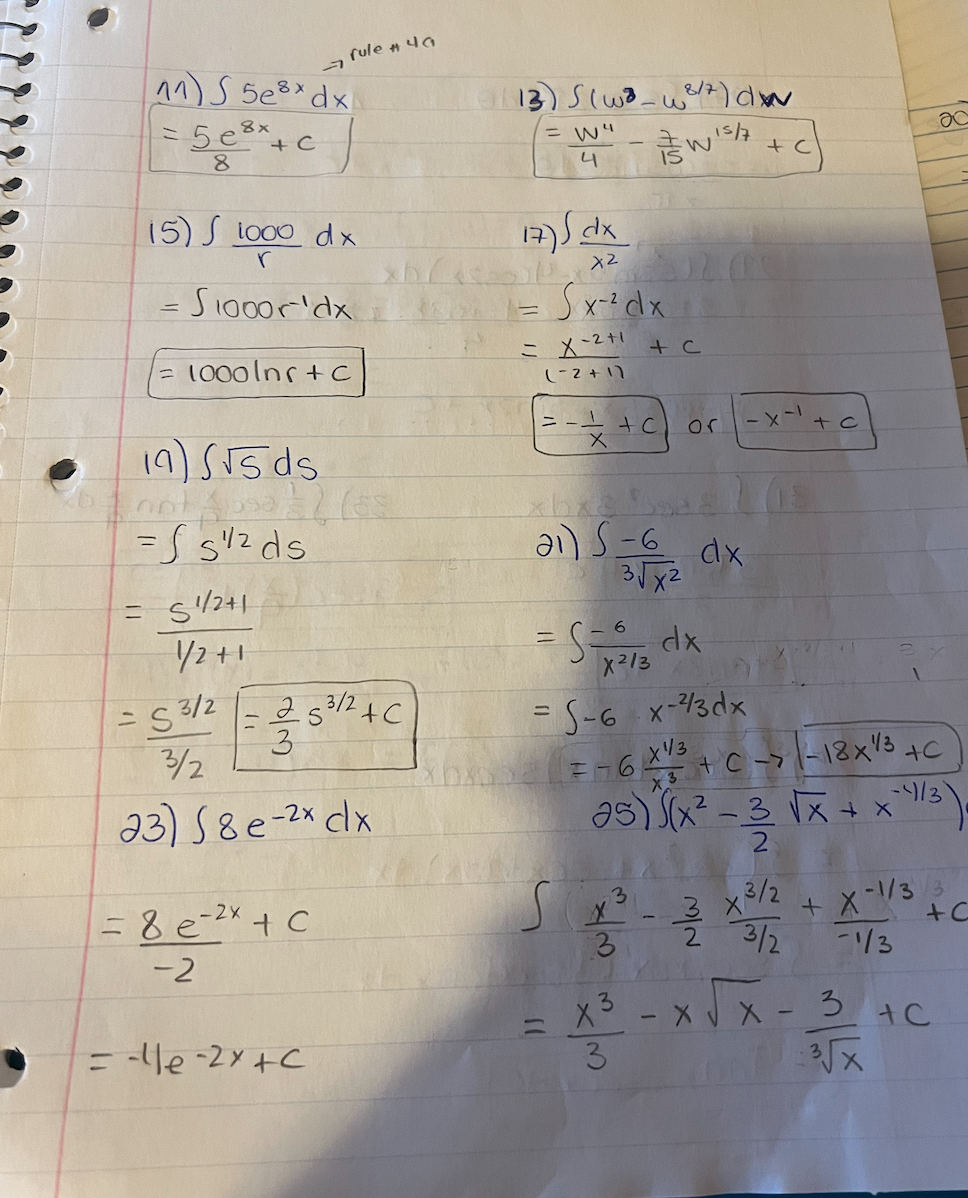 → rule # 4a
11) ∫ 5e^{8x} dx
= 5e^{8x}/8 + C
13) ∫(w³ - w^{8/7}) dw
= w⁴/4 - 7/15 w^{15/7} + C
15) ∫ 1000/r dx
= ∫1000r⁻¹dx
= 1000lnr + C
17) ∫ dx/x²
= ∫ x⁻² dx
= x^{-2+1}/(-2+1) + C
= -1/x + C or -x⁻¹ + C
19) ∫√s ds
= ∫ s^{1/2} ds
= s^{1/2+1}/(1/2+1)
= s^{3/2}/(3/2) = 2/3 s^{3/2} + C
21) ∫ -6/∛x² dx
= ∫ -6/x^{2/3} dx
= ∫-6 x^{-2/3}dx
= -6 x^{1/3}/x³ + C → -18x^{1/3} + C
23) ∫8e^{-2x} dx
= 8e^{-2x}/-2 + C
= -4e^{-2x} + C
25) ∫(x² - 3/2 √x + x^{-4/3})
∫ x³/3 - 3/2 x^{3/2}/(3/2) + x^{-1/3}/(-1/3) + C
= x³/3 - x√x - 3/∛x + C